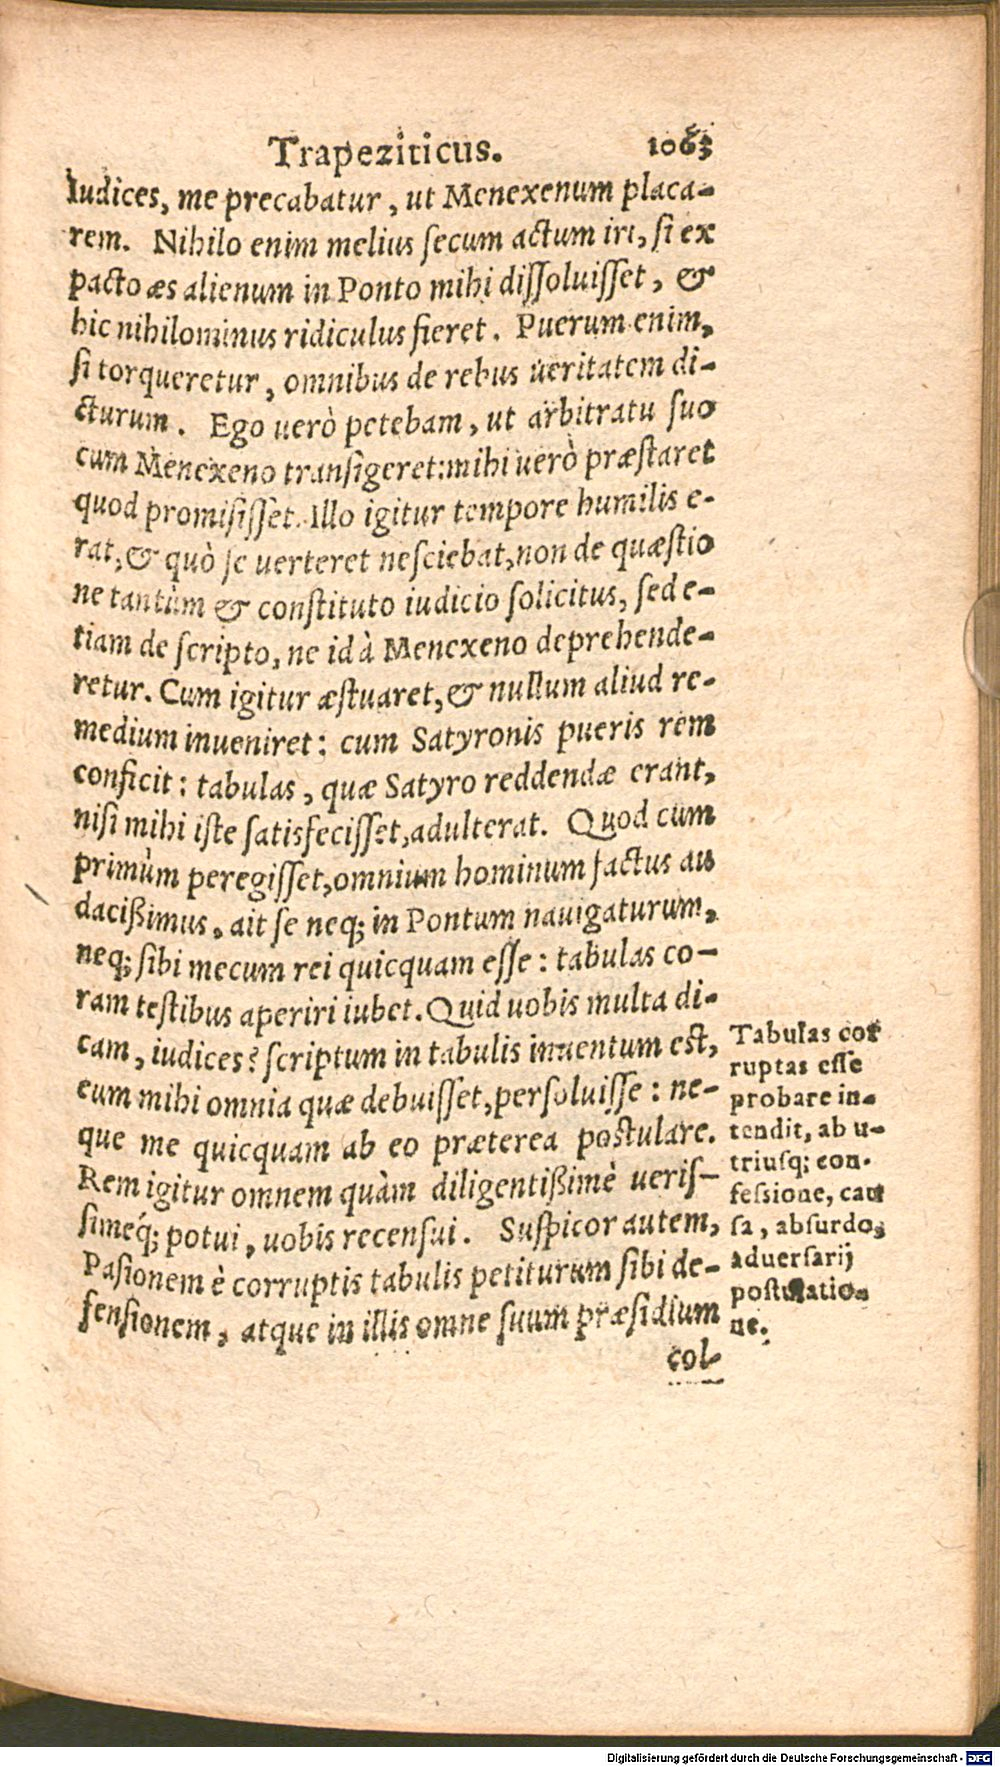 Trapeziticus. 1063
Iudices, me precabatur, ut Menexenum placa-
rem. Nihilo enim melius secum actum iri, si ex
pacto æs alienum in Ponto mihi dissoluisset, &
hic nihilominus ridiculus fieret. Puerum enim,
si torqueretur, omnibus de rebus ueritatem di-
cturum. Ego uerò petebam, ut arbitratu suo
cum Menexeno transigeret: mihi uerò præstaret
quod promisisset. Illo igitur tempore humilis e-
rat, & quò se uerteret nesciebat, non de quæstio
ne tantùm & constituto iudicio solicitus, sed e-
tiam de scripto, ne id à Menexeno deprehende-
retur. Cum igitur æstuaret, & nullum aliud re-
medium inueniret: cum Satyronis pueris rem
conficit: tabulas, quæ Satyro reddendæ erant,
nisi mihi iste satisfecisset, adulterat. Quod cum
primùm peregisset, omnium hominum factus au
dacißimus, ait se neq; in Pontum nauigaturum,
neq; sibi mecum rei quicquam esse: tabulas co-
ram testibus aperiri iubet. Quid uobis multa di-
cam, iudices? scriptum in tabulis inuentum est,
eum mihi omnia quæ debuisset, persoluisse: ne-
que me quicquam ab eo præterea postulare.
Rem igitur omnem quàm diligentißimè ueris-
simeq́; potui, uobis recensui. Suspicor autem,
Pasionem è corruptis tabulis petiturum sibi de-
fensionem, atque in illis omne suum præsidium
col-
Tabulas cor
ruptas esse
probare in-
tendit, ab u-
triusq; con-
fessione, cau
sa, absurdo,
aduersarij
postulatio-
ne.
Digitalisierung gefördert durch die Deutsche Forschungsgemeinschaft - DFG